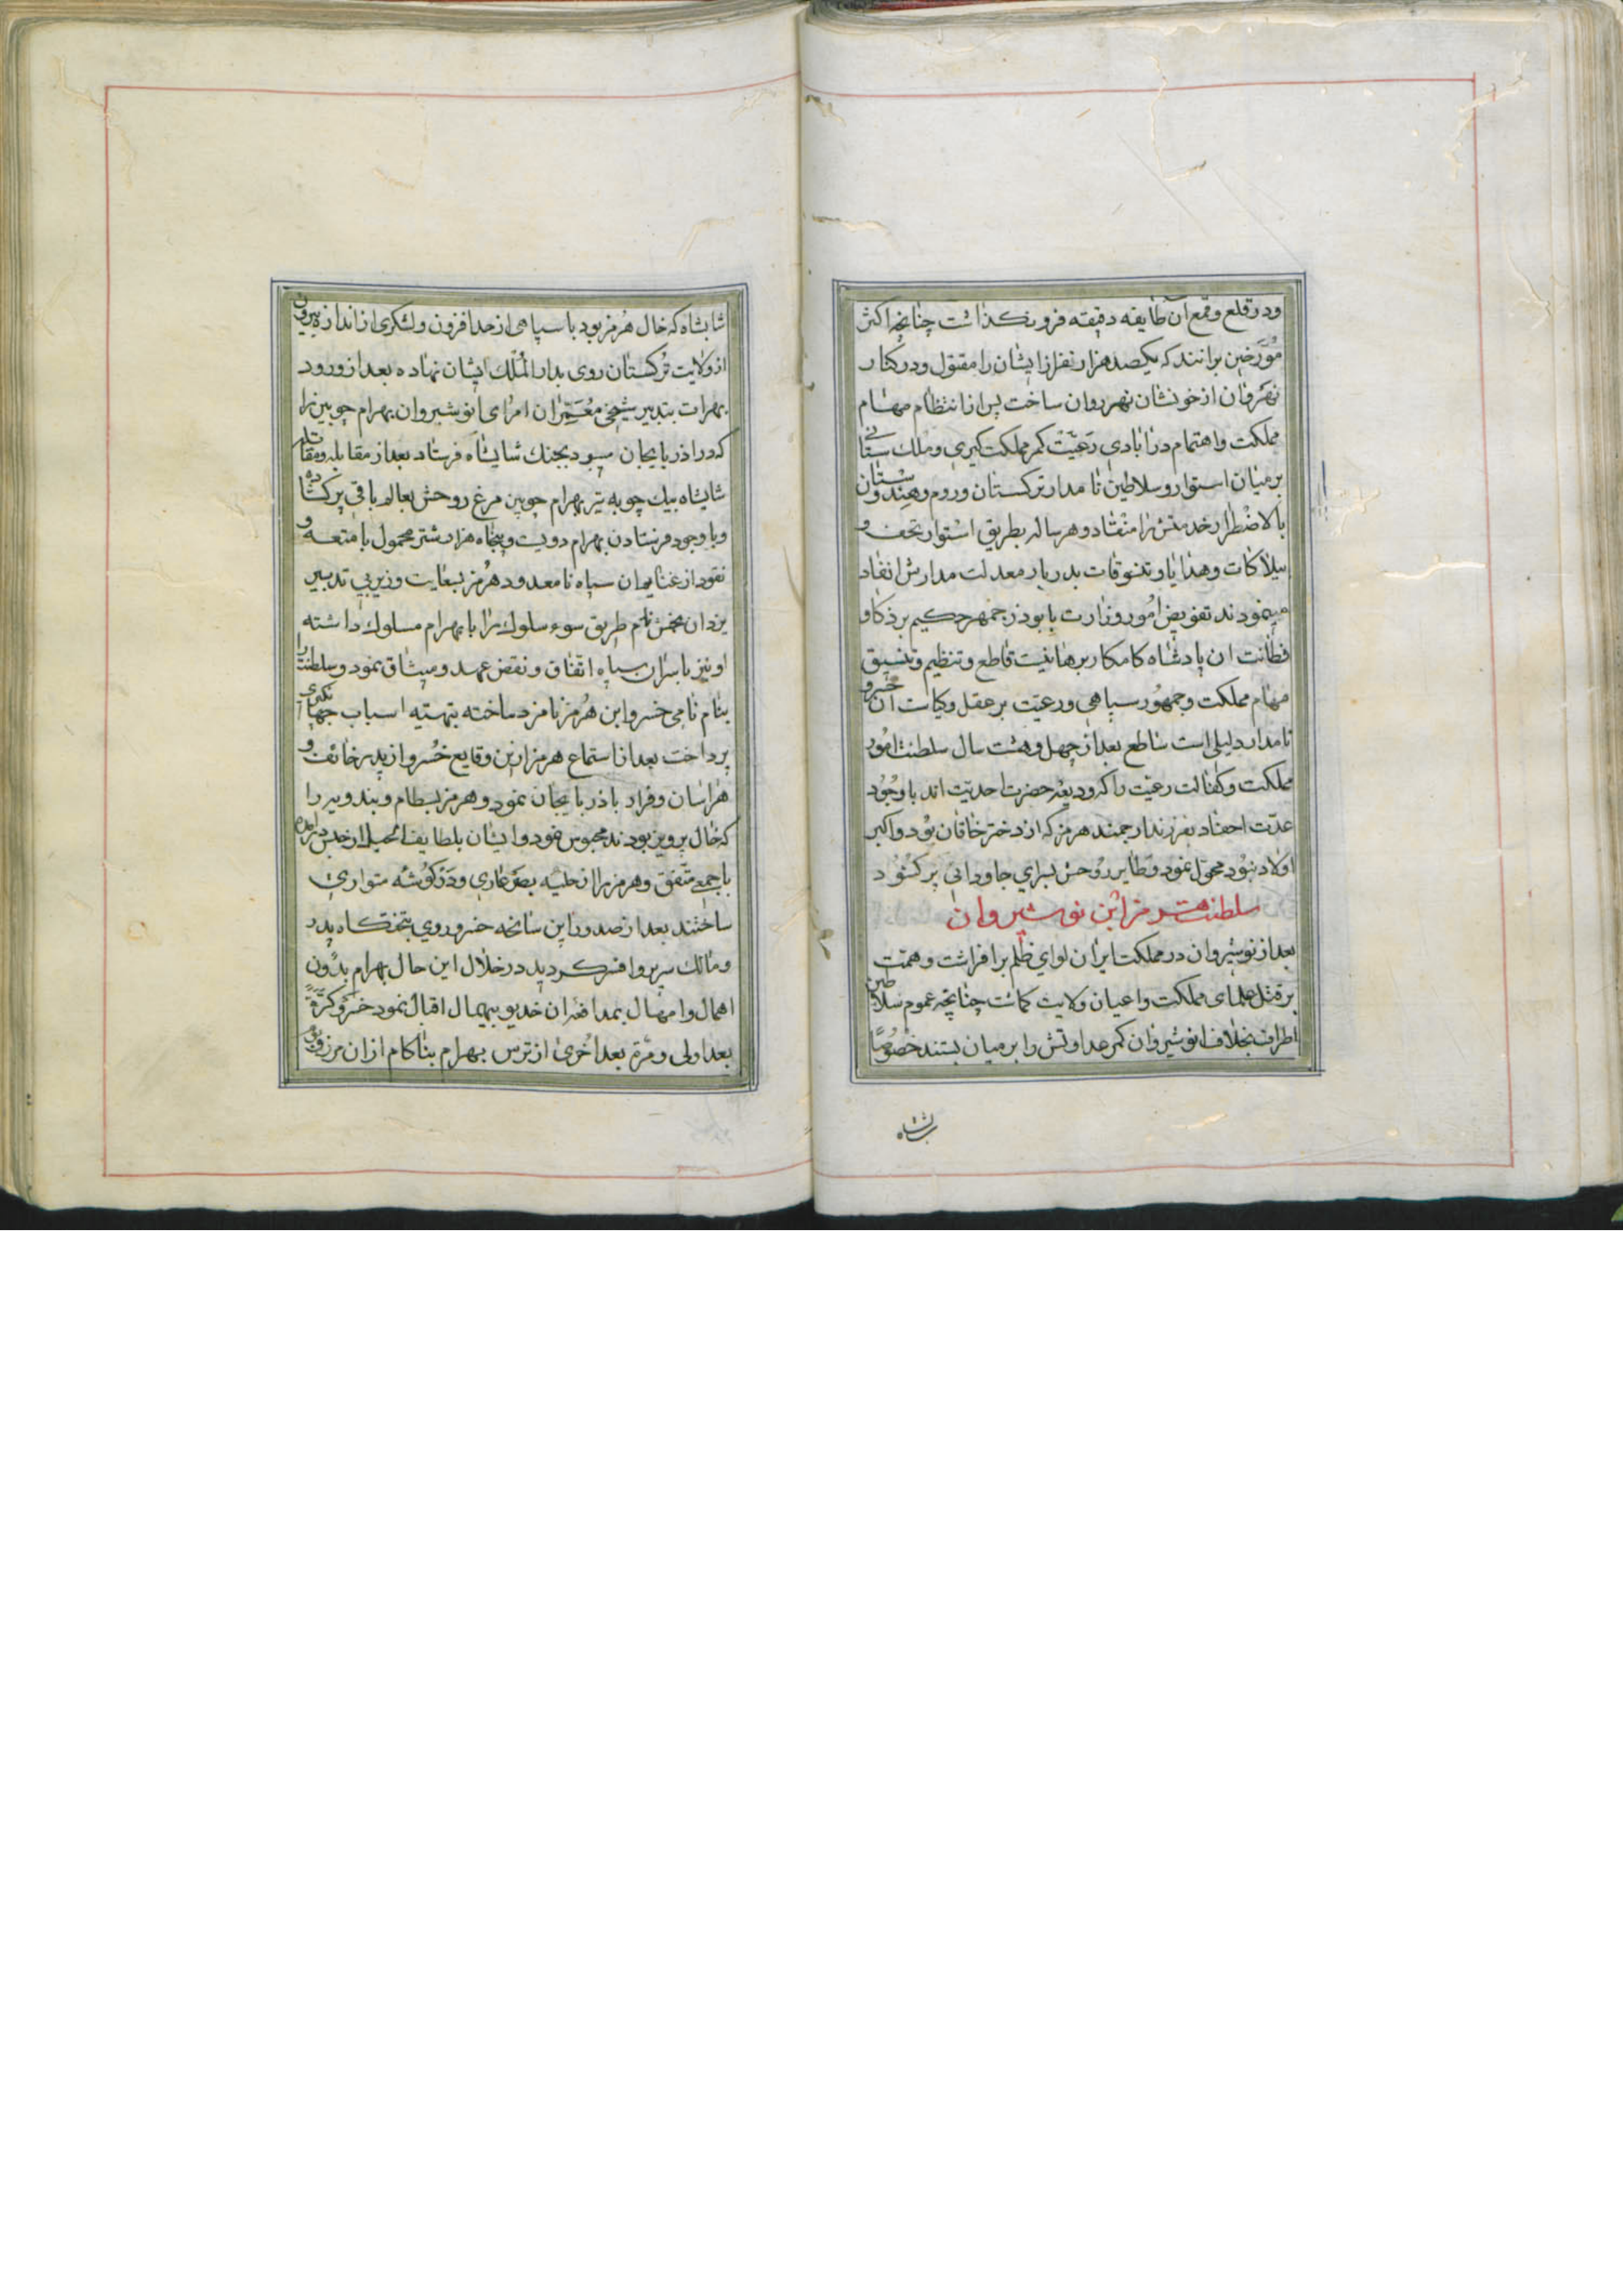 ودر قلع وقمع آن طایفه دقیقه فرونکذاشت چنانچه اکثر
مورّخین برانند که یکصد هزار نفر از ایشان را مقتول ودر کنار
نهروان از خونشان نهر روان ساخت پس از انتظام مهام
مملکت واهتمام در ابادی رعیّت کمر مملکت کیری وملک ستانی
بر میان استوار وسلاطین نامدار ترکستان وروم وهندوستان
بالاضطرار خدمتش را منقاد وهر ساله بطریق استوار تحف و
بیلاکات وهدایا وتنسوقات بدربار معدلت مدارش انفاد
مینمودند تفویض امور وزارت بابوذرجمهر حکیم بر ذکاو
فطانت ان پادشاه کامکار برهانیست قاطع وتنظیم وتنسیق
مهام مملکت وجمهور سپاهی ورعیّت بر عقل وکیاست ان خسرو
نامدار دلیلی است ساطع بعد از چهل وهشت سال سلطنت امور
مملکت وکفالت رعیّت را که ودیعه حضرت احدیّت اند باوجود
عدّت احفاد بفرزند ارجمند هرمز که از دختر خاقان بود واکبر
اولاد نبود محوّل نمود وطایر روحش بسرای جاودانی پر کشود
سلطنت هرمز ابن نوشیروان
بعد از نوشیروان در مملکت ایران لوای ظلم برافراشت وهمّت
بر قتل علمای مملکت واعیان ولایت کماشت چنانچه عموم سلاطین
اطراف بخلاف انوشیروان کمر عداوتش را بر میان بستند خصوصًا
شابشاه
شابشاه که خال هرمز بود با سپاهی از حد افزون ولشکری از اندازه بیرون
از ولایت ترکستان روی بدار الملک ایشان نهاده بعد از ورود
بهرات بتدبیر شیخی معمّر از امرای انوشیروان بهرام چوبین را
که در اذربایجان میبود بجنك شابشاه فرستاد بعد از مقابله ومقاتله
شابشاه بیك چوبه تیر بهرام چوبین مرغ روحش بعالم باقی پر کشاده
وباوجود فرستادن بهرام دویست وپنجاه هزار شتر محمول بامتعه و
نقود از غنایم ان سپاه نامعدود هرمز بسعایت وزیر بی تدبیر
یزدان بخش نام طریق سوء سلوك را با بهرام مسلوك داشته
او نیز با سران سپاه اتّفاق ونقض عهد ومیثاق نمود وسلطنت را
بنام نامی خسرو ابن هرمز نامزد ساخته بتهیّه اسباب جهانکیری
پرداخت بعد از استماع هرمز از این وقایع خسرو از پدر خائف و
هراسان وفرار باذربایجان نمود وهرمز بسطام وبندویه را
که خال پرویز بودند محبوس نمود وایشان بلطایف الحیل از حبس در امده
با جمعی متّفق وهرمز را از حلیه بصر عاری ودر کوشه متواری
ساختند بعد از صدور این سانحه خسرو روی بتختکاه پدر
ومالك سریر وافسر کردید در خلال این حال بهرام بدون
اهمال وامهال بمدافعه ان خدیو بیهمال اقبال نمود خسرو کرّةً
بعد اولی ومرّة بعد اُخری از ترس بهرام بناکام ازان مرز وبوم